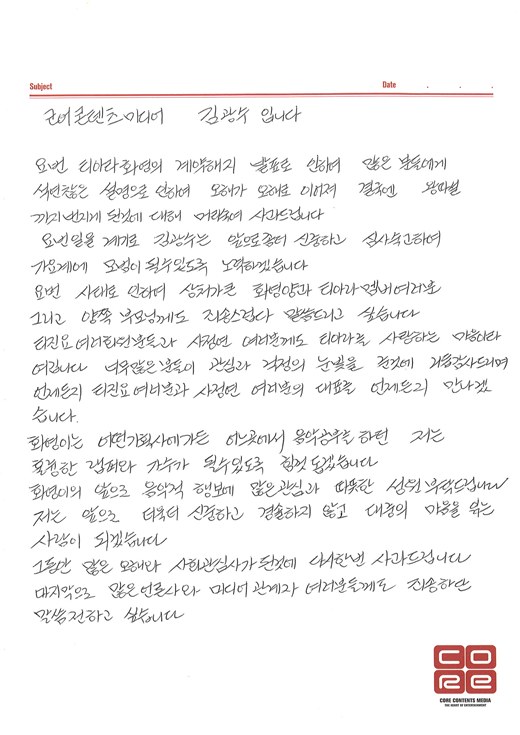 Subject
Date . . .
코어콘텐츠미디어 김광수 입니다
요번 티아라화영의 계약해지 발표로 인하여 많은 분들에게
석연찮은 설명으로 인하여 오해가 오해로 이어져 결국엔 왕따설
까지번지게 된것에 대해 머리숙여 사과드립니다
요번일을 계기로 김광수는 앞으로좀더 신중하고 심사숙고하여
가요계에 모범이 될수있도록 노력하겠습니다
요번 사태로 인하여 상처가큰 화영양과 티아라멤버여러분
그리고 양쪽 부모님께도 죄송스럽다 말씀드리고 싶습니다
티진요여러회원분들과 사정연 여러분께도 티아라를 사랑하는 마음이라
여깁니다 너무많은분들이 관심과 걱정의 눈빛을 준것에 거듭감사드리며
언제든지 티진요여러분과 사정연 여러분의 대표를 언제든지 만나겠
습니다.
화영이는 어떤기획사에가든 어느곳에서 음악공부를 하던 저는
훌륭한 랩퍼와 가수가 될수있도록 힘껏 돕겠습니다
화영이의 앞으로 음악적 행보에 많은관심과 따뜻한 성원 부탁드립니다
저는 앞으로 더욱더 신중하고 경솔하지 않고 대중의 마음을 읽는
사람이 되겠습니다
그동안 많은 오해와 사회관심사가된것에 다시한번 사과드립니다
마지막으로 많은언론사와 미디어 관계자 여러분들께도 죄송하단
말씀전하고 싶습니다
CORE
CORE CONTENTS MEDIA
THE HEART OF ENTERTAINMENT